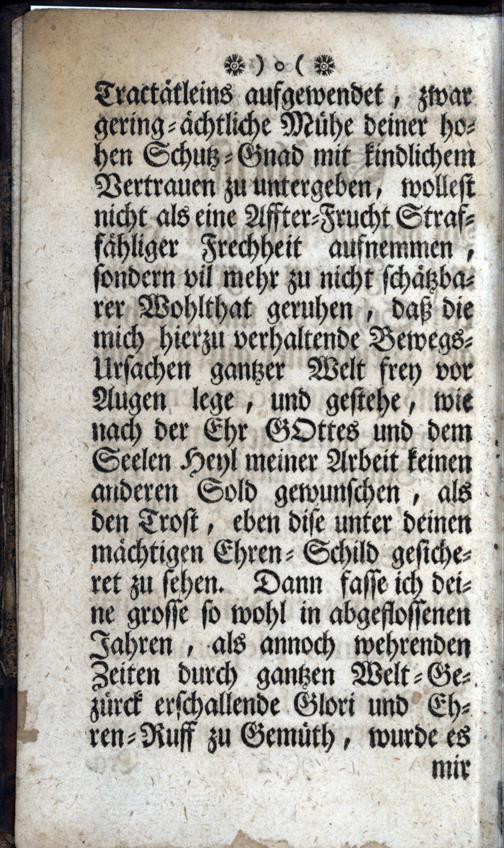 ❋ ) o ( ❋
Tractätleins aufgewendet, zwar
gering-ächtliche Mühe deiner ho-
hen Schutz-Gnad mit kindlichem
Vertrauen zu untergeben, wollest
nicht als eine Affter-Frucht Straf-
fähliger Frechheit aufnemmen,
sondern vil mehr zu nicht schätzba-
rer Wohlthat geruhen, daß die
mich hierzu verhaltende Bewegs-
Ursachen gantzer Welt frey vor
Augen lege, und gestehe, wie
nach der Ehr GOttes und dem
Seelen Heyl meiner Arbeit keinen
anderen Sold gewunschen, als
den Trost, eben dise unter deinen
mächtigen Ehren-Schild gesiche-
ret zu sehen. Dann fasse ich dei-
ne grosse so wohl in abgeflossenen
Jahren, als annoch wehrenden
Zeiten durch gantzen Welt-Ge-
zürck erschallende Glori und Eh-
ren-Ruff zu Gemüth, wurde es
mir